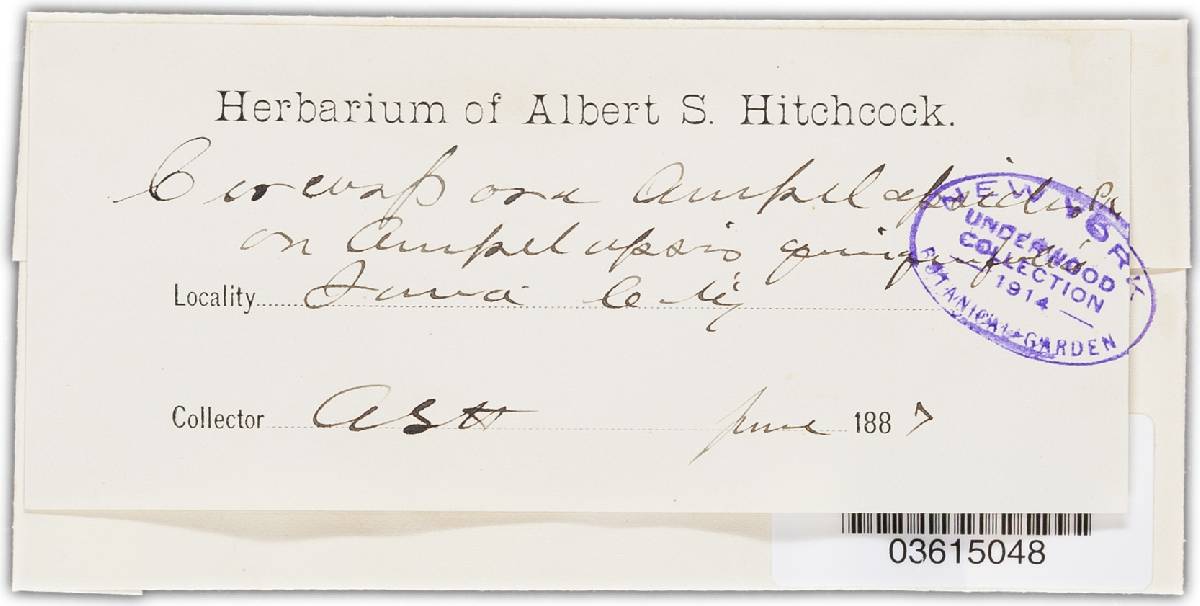 Herbarium of Albert S. Hitchcock.
Cercospora Ampelopsidis Pk
on Ampelopsis quinquefolia
Locality Iowa City
Collector ASH June 1887
NEW YORK
UNDERWOOD
COLLECTION
1914
BOTANICAL GARDEN
03615048